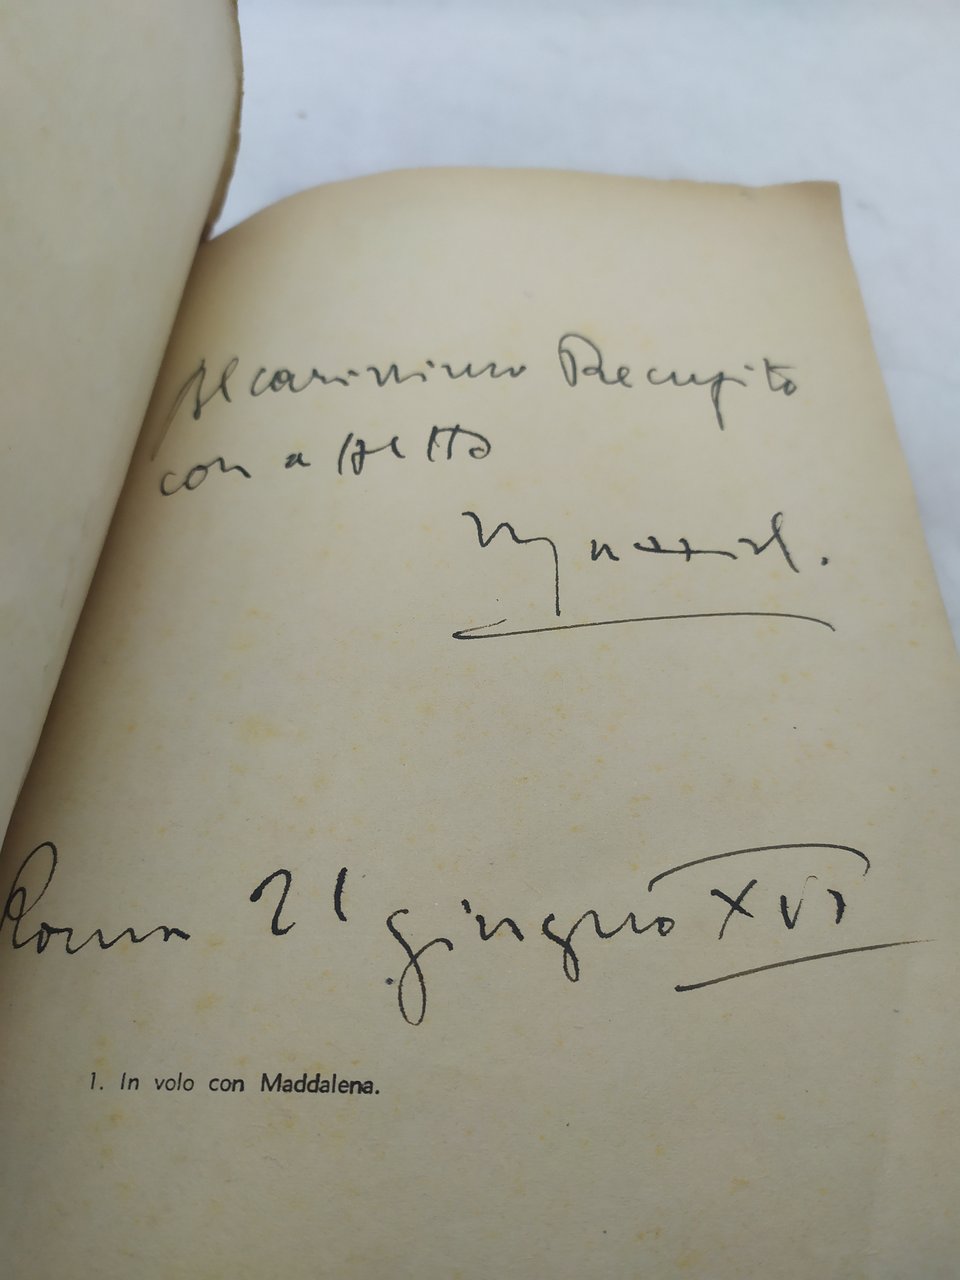 Al carissimo Recupito
con affetto
Roma 21 giugno XVI
1. In volo con Maddalena.